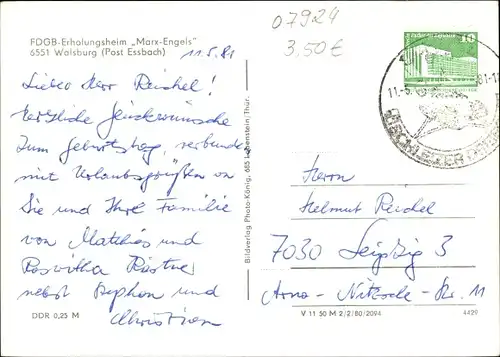 07924
3,50 €
FDGB-Erholungsheim „Marx-Engels"
6551 Walsburg (Post Essbach)
11.5.81
Lieber Herr Reichel!
Herzliche Glückwünsche
zum Geburtstag, verbunden
mit Urlaubsgrüßen an
Sie und Ihre Familie
von Matthias und
Roswitha
nebst Stephan und
Christian
DDR 0,25 M
Bildverlag Photo-König, 685 Lobenstein/Thür.
10
Herrn
Helmut Reichel
7030 Leipzig 3
Arno-Nitzsche-Str. 11
V 11 50 M 2/2/80/2094
4429